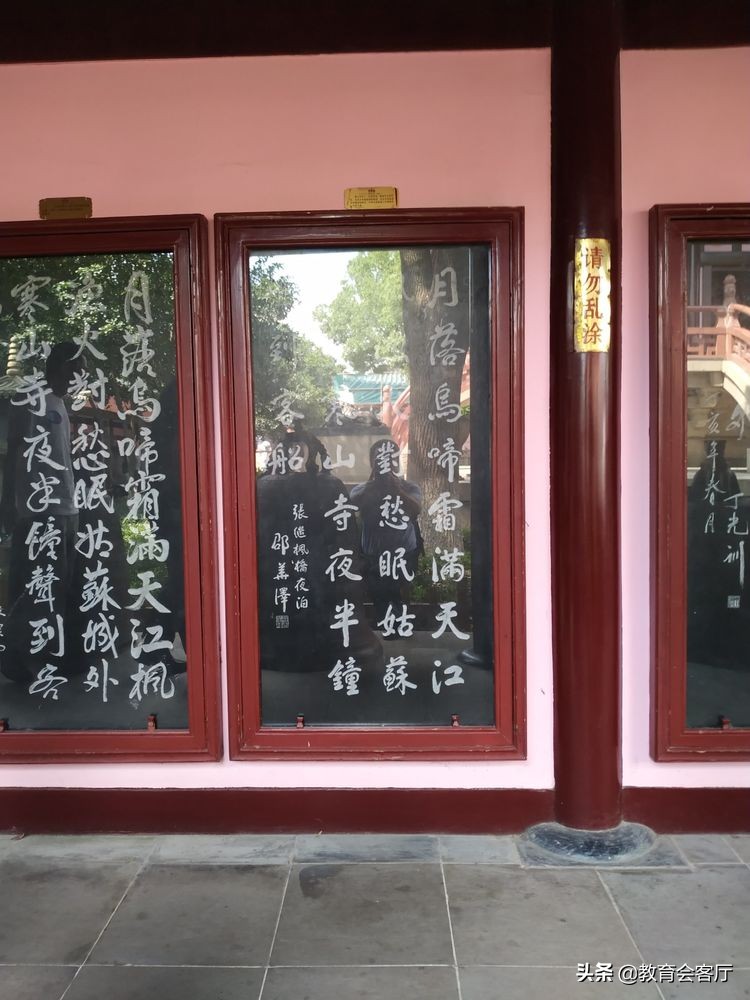 月落烏啼霜滿天江楓
漁火對愁眠姑蘇城外
寒山寺夜半鐘聲到客
月落烏啼霜滿天江
對愁眠姑蘇
寒山寺夜半鐘
到客船
張繼楓橋夜泊
邵華澤
请勿乱涂
丁亥年春月
丁光訓
头条 @教育会客厅